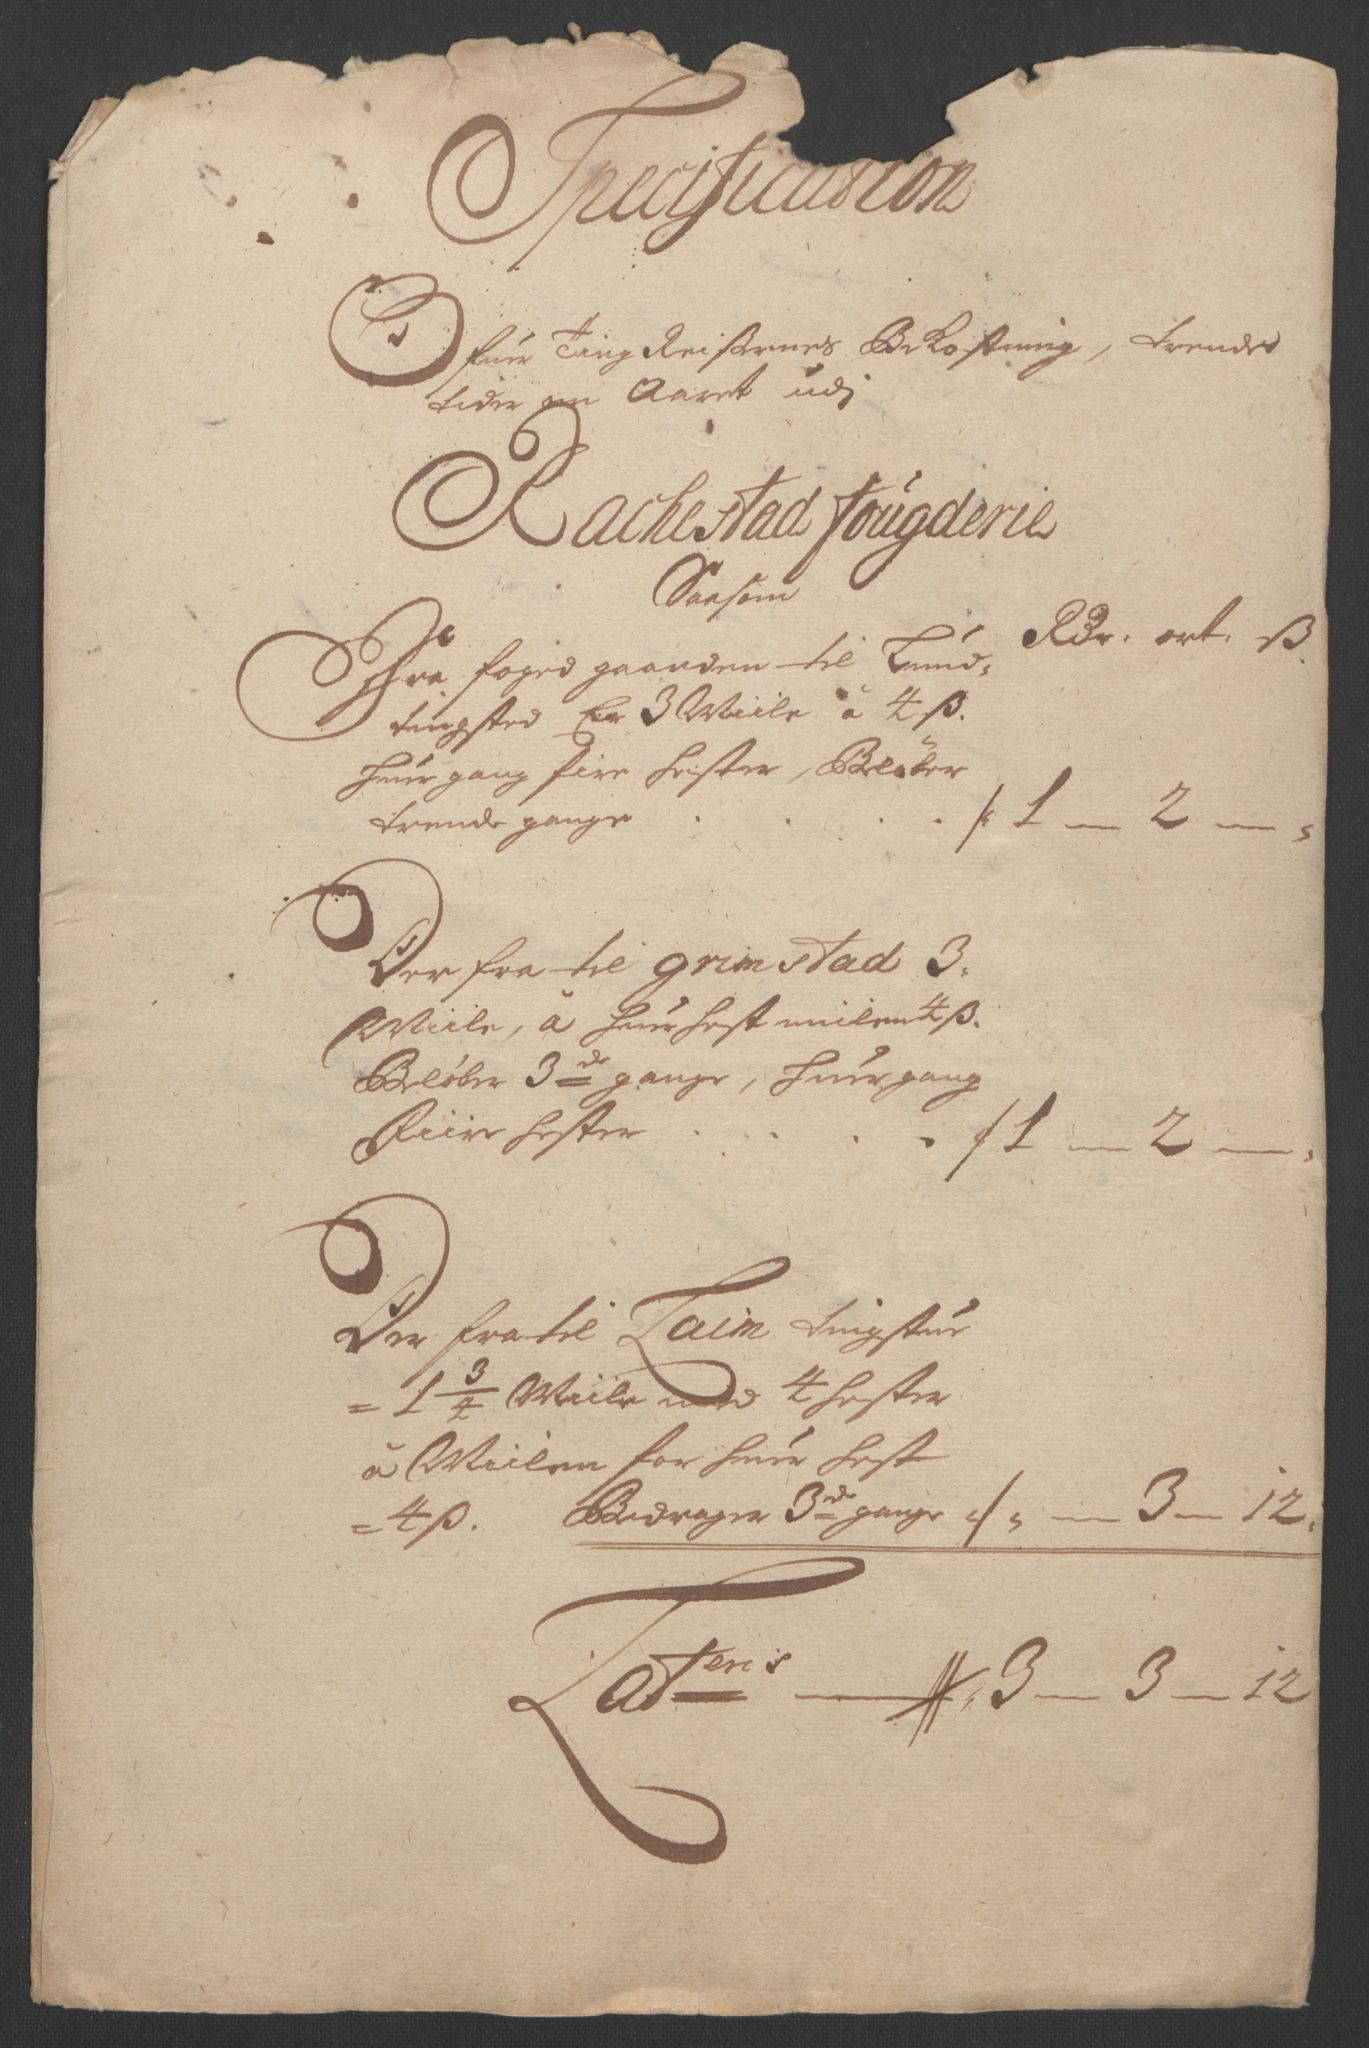 Specification
Ofuer Ting Reisernes Bekostning, trende
tider om Aaret udj
Rachestad fougderie
Saasom
Rdr. ort. ß.
Fra foged gaarden til Lund-
tingsted Er 3 Miile â 4 ß.
huer gang fire hester, Beløber
trende gange . . . . 1 — 2 —
Der fra til grimstad 3.
Miile, â huer hest miilen 4 ß.
Beløber 3de gange, huer gang
Fiire hester . . . . 1 — 2 —
Der fra til Laim tingstue
= 1 3/4 Miile med 4 hester
â Miilen for huer hest
= 4 ß. Bedrager 3de gange — 3 — 12.
Lateris — 3 — 3 — 12